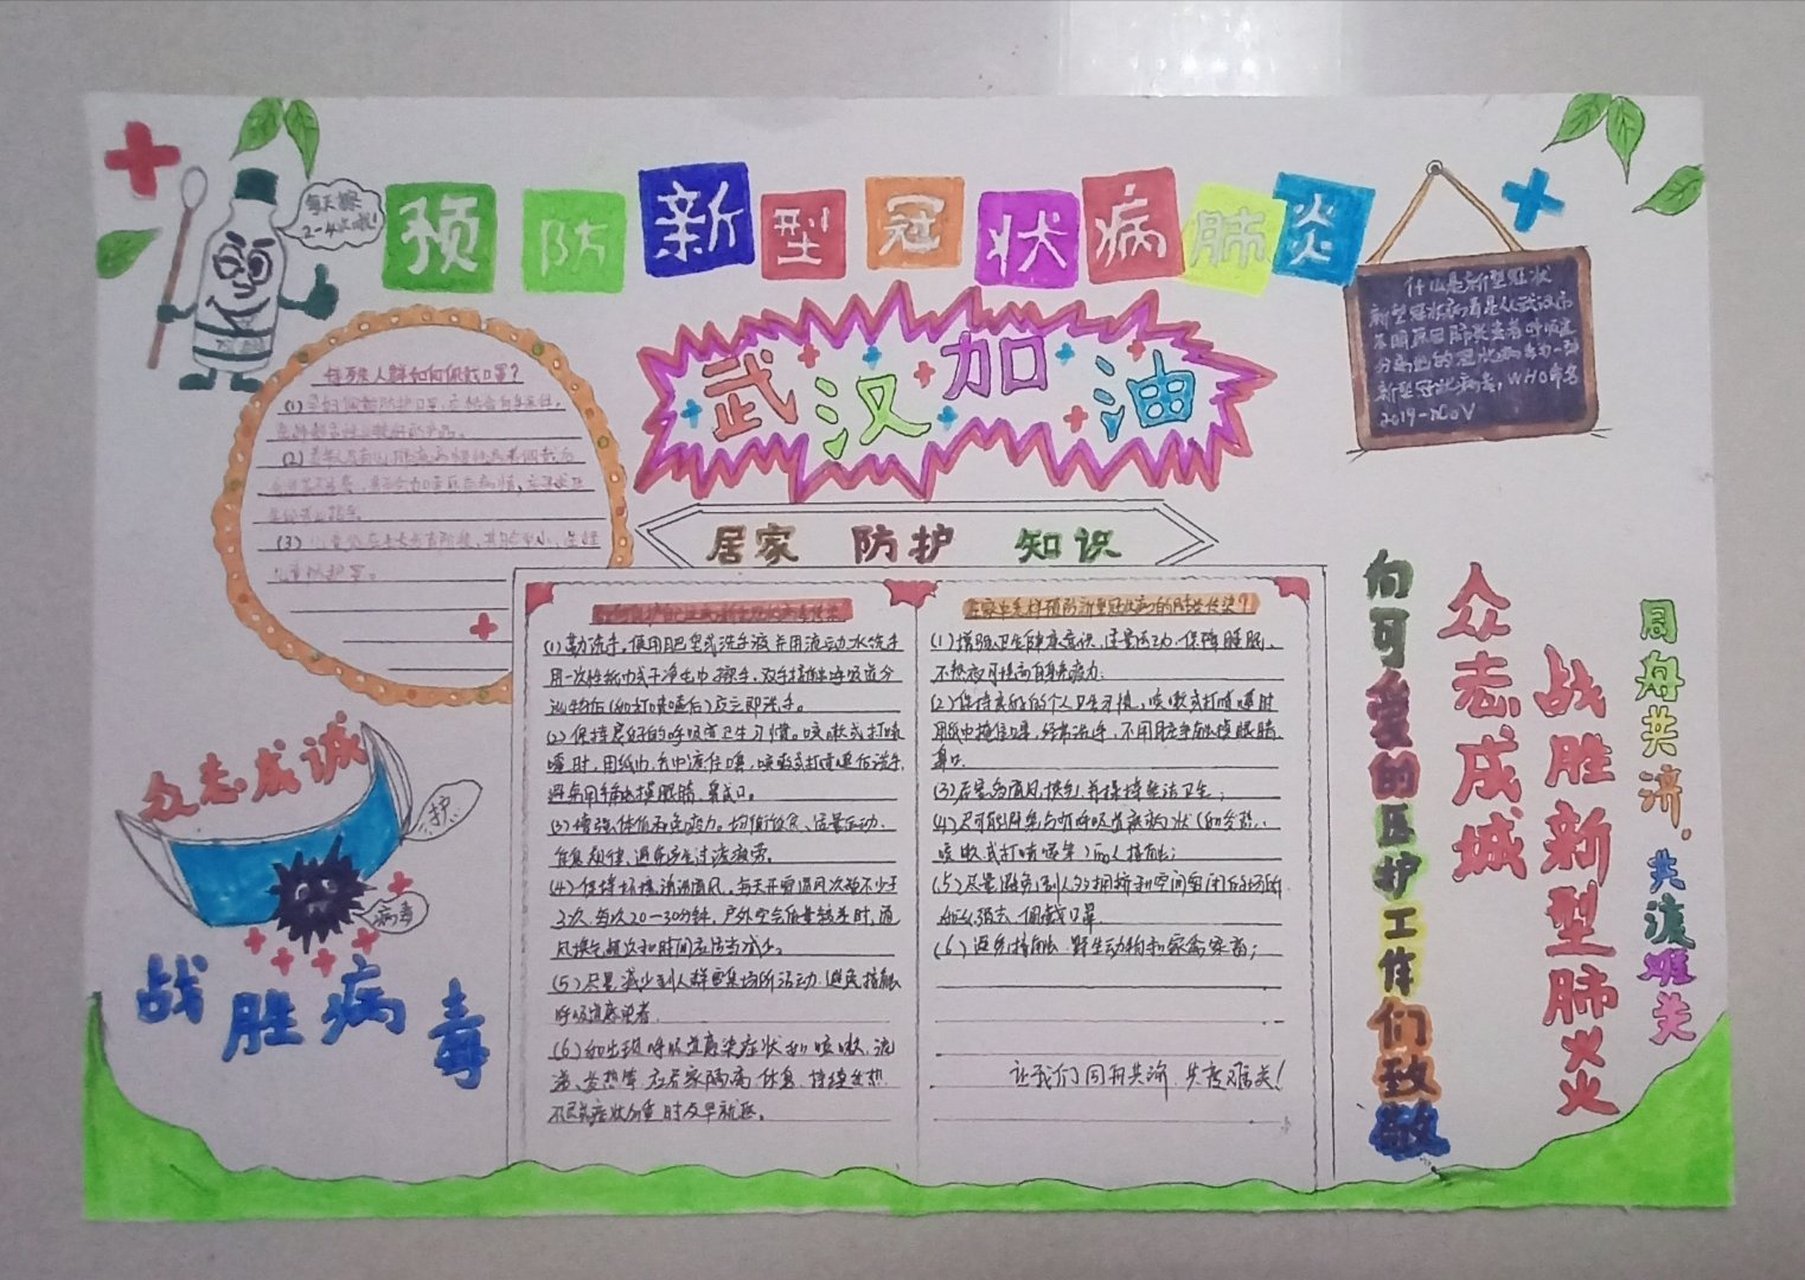 预防新型冠状病肺炎
每天擦
2-4次哦!
武汉加油
什么是新型冠状
新型冠状病毒是从武汉市
不明原因肺炎患者呼吸道
分离出的冠状病毒为一种
新型冠状病毒,WHO命名
2019-nCoV
特殊人群如何佩戴口罩?
(1)
(2)
(3)
儿童防护罩。
居家 防护 知识
(1)勤洗手。使用肥皂或洗手液并用流动水洗手
用一次性纸巾或干净毛巾擦手,双手接触呼吸道分
泌物后(如打喷嚏后)应立即洗手。
(2)保持良好的呼吸道卫生习惯。咳嗽或打喷
嚏时,用纸巾、毛巾遮住口鼻,咳嗽或打喷嚏后洗手,
避免用手触摸眼睛、鼻或口。
(3)增强体质和免疫力。均衡饮食、适量运动、
作息规律、避免产生过度疲劳。
(4)保持环境清洁通风。每天开窗通风次数不少于
3次,每次20-30分钟。户外空气质量较差时,通
风换气频次和时间应适当减少。
(5)尽量减少到人群密集场所活动,避免接触
呼吸道感染者。
(6)如出现呼吸道感染症状如咳嗽、流
涕、发热等,应居家隔离休息,持续发热
不退或症状加重时及早就医。
在家中怎样预防新型冠状病毒的肺炎传染?
(1)增强卫生健康意识,适量运动、保障睡眠、
不熬夜可提高自身免疫力;
(2)保持良好的个人卫生习惯,咳嗽或打喷嚏时
用纸巾掩住口鼻,经常洗手,不用脏手触摸眼睛、
鼻口.
(3)居室多通风换气并保持整洁卫生;
(4)尽可能避免与有呼吸道疾病症状(如发热、
咳嗽或打喷嚏等)的人接触;
(5)尽量避免到人多拥挤和空间密闭的场所,
如必须去,佩戴口罩.
(6)避免接触野生动物和家禽家畜;
让我们同舟共济,共度难关!
众志成诚
护
病毒
战胜病毒
向可爱的医护工作们致敬
众志成城
战胜新型肺火火
周舟共济,共渡难关